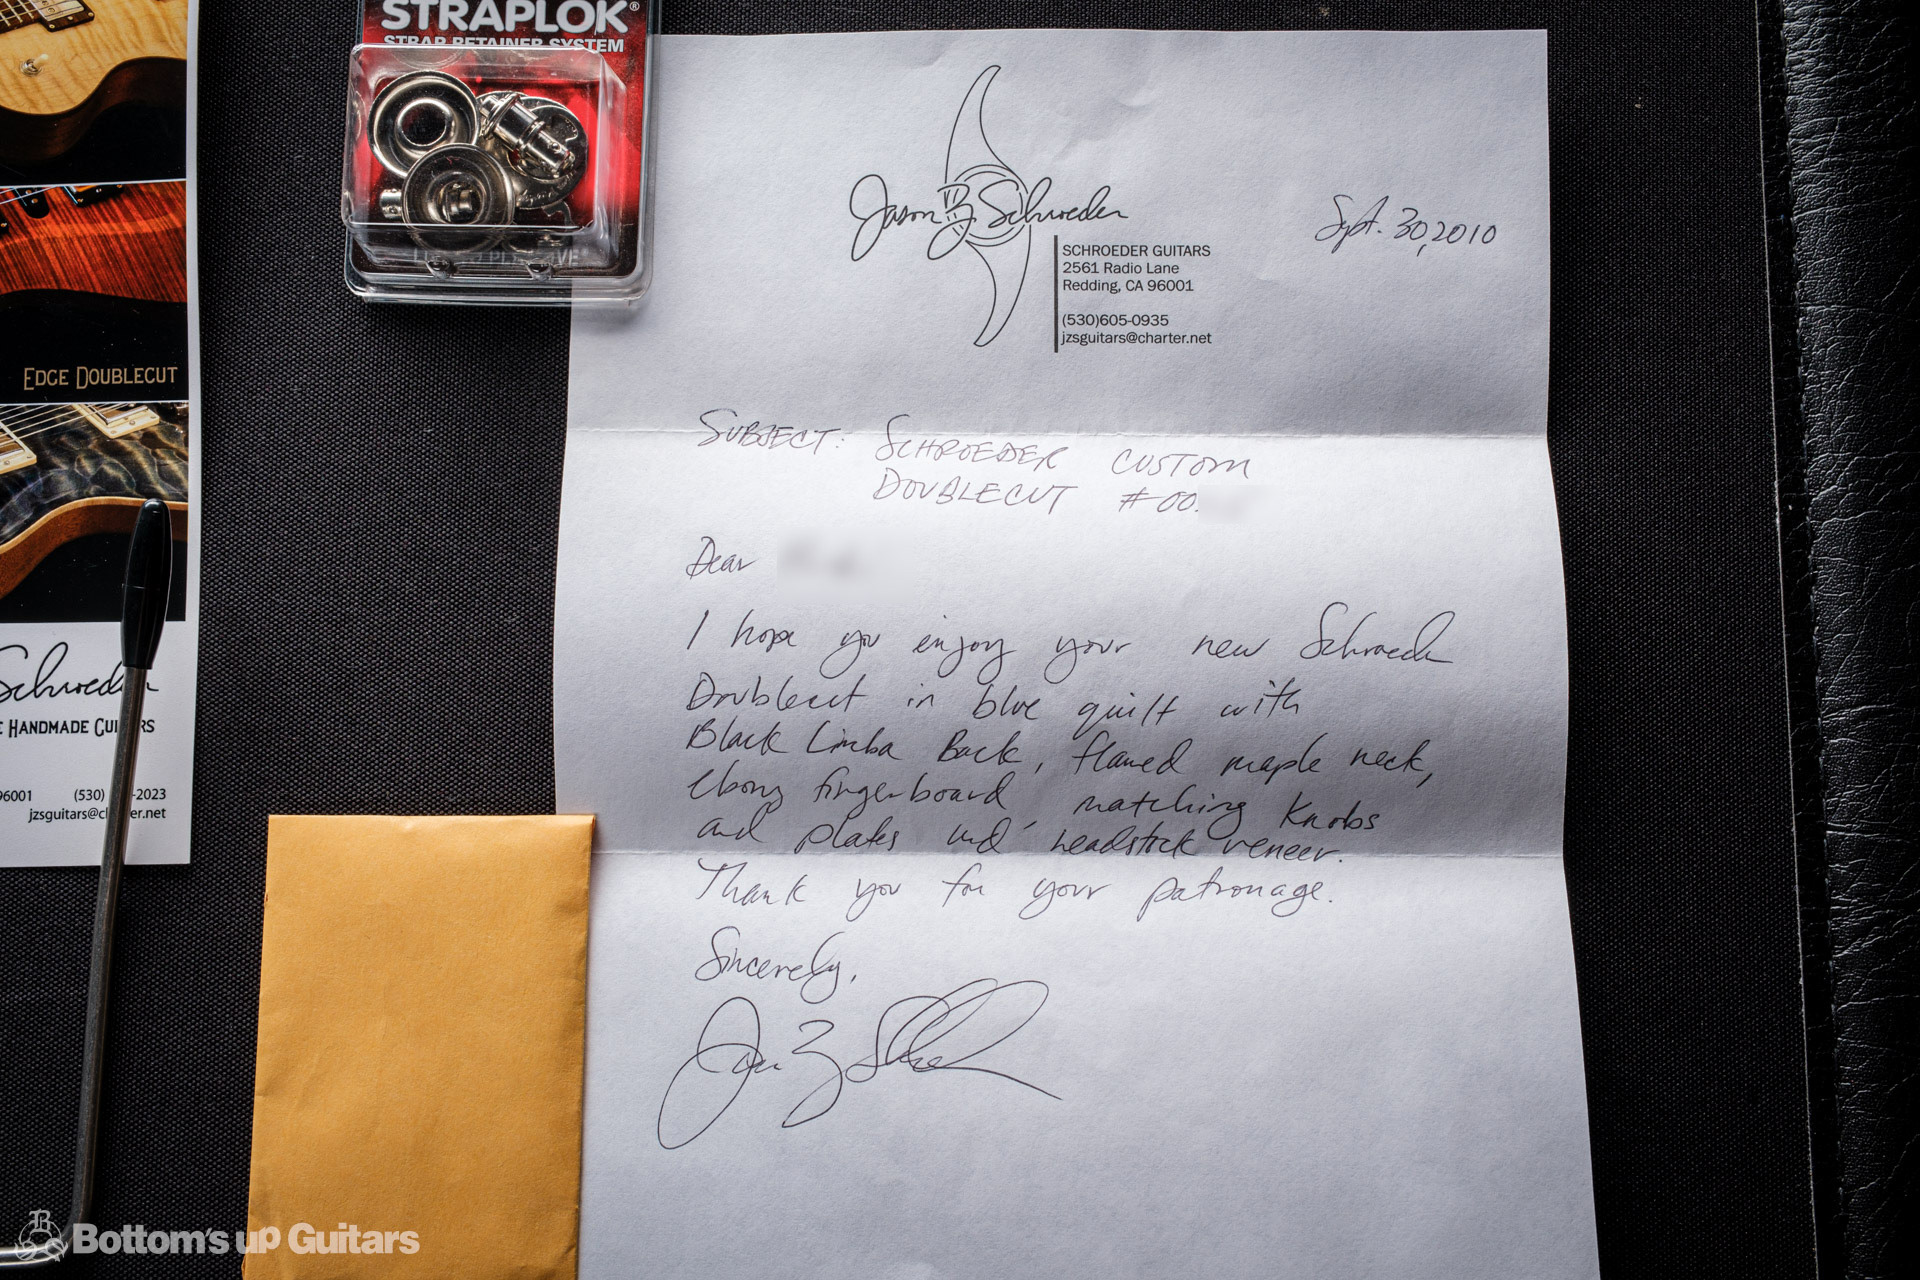 STRAPLOK®
STRAP RETAINER SYSTEM
EDGE DOUBLECUT
Schroeder
HANDMADE GUITARS
96001 (530) -2023
jzsguitars@charter.net
Jason Z. Schroeder
SCHROEDER GUITARS
2561 Radio Lane
Redding, CA 96001
(530)605-0935
jzsguitars@charter.net
Sept. 30, 2010
SUBJECT: SCHROEDER CUSTOM
DOUBLECUT #00
Dear
I hope you enjoy your new Schroeder
Doublecut in blue quilt with
Black Limba Back, flamed maple neck,
ebony fingerboard, matching knobs
and plates and headstock veneer.
Thank you for your patronage.
Sincerely,
Jason Z Schroeder
Bottom's up Guitars